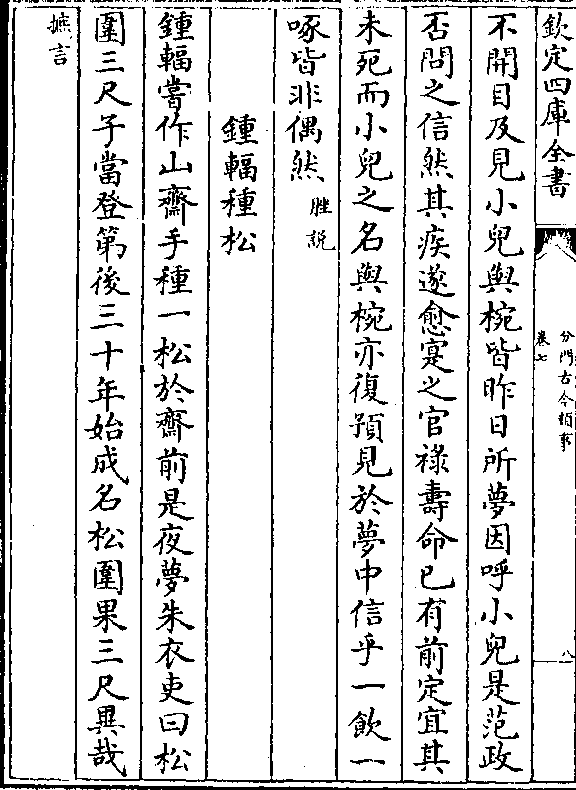 欽定四庫全書
分門古今類事
卷七
八
不開目及見小兒與椀皆昨日所夢因呼小兒是范政
否問之信然其疾遂愈寔之官祿壽命已有前定宜其
未死而小兒之名與椀亦復預見於夢中信乎一飲一
啄皆非偶然 脞説
鍾輻種松
鍾輻嘗作山齋手種一松於齋前是夜夢朱衣吏曰松
圍三尺子當登第後三十年始成名松圍果三尺異哉
摭言